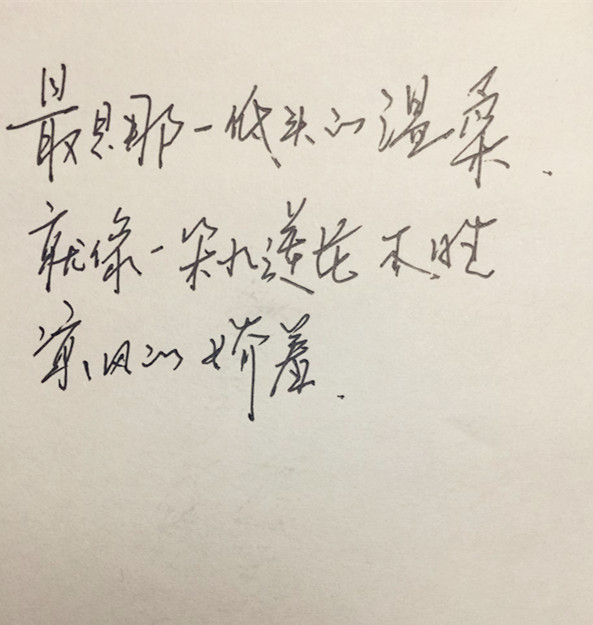 最是那一低头的温柔.
就像一朵水莲花不胜
凉风的娇羞.